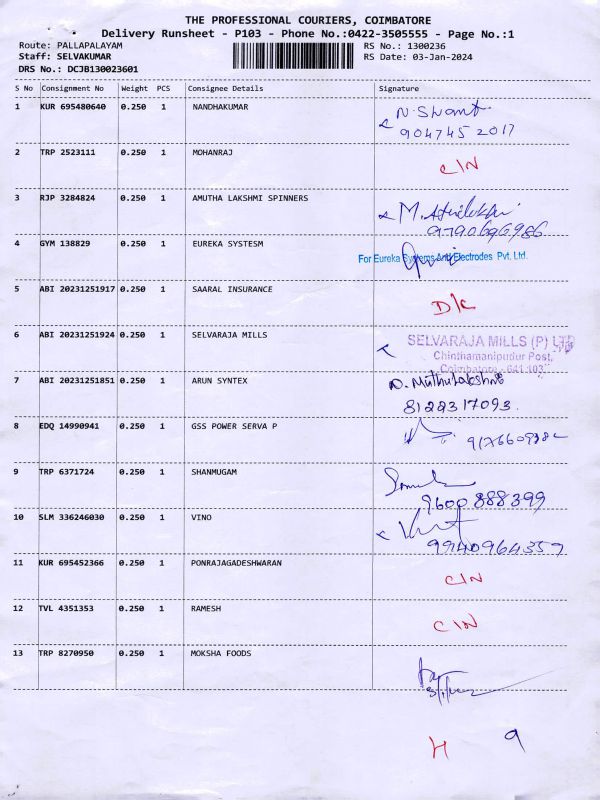 THE PROFESSIONAL COURIERS, COIMBATORE
Delivery Runsheet - P103 - Phone No.:0422-3505555 - Page No.:1
Route: PALLAPALAYAM RS No.: 1300236
Staff: SELVAKUMAR RS Date: 03-Jan-2024
DRS No.: DCJB130023601
S No Consignment No Weight PCS Consignee Details Signature
1 KUR 695480640 0.250 1 NANDHAKUMAR
904745 2017
2 TRP 2523111 0.250 1 MOHANRAJ C/N
3 RJP 3284824 0.250 1 AMUTHA LAKSHMI SPINNERS M.
9790696986
4 GYM 138829 0.250 1 EUREKA SYSTESM
For Eureka Systems And Electrodes Pvt. Ltd.
5 ABI 20231251917 0.250 1 SAARAL INSURANCE D/C
6 ABI 20231251924 0.250 1 SELVARAJA MILLS SELVARAJA MILLS (P) LTD
Chinthamanipudur Post,
Coimbatore - 641 103
7 ABI 20231251851 0.250 1 ARUN SYNTEX D. Muthulakshmi
8122317093.
8 EDQ 14990941 0.250 1 GSS POWER SERVA P
9 TRP 6371724 0.250 1 SHANMUGAM
9600 888399
10 SLM 336246030 0.250 1 VINO
9940964357
11 KUR 695452366 0.250 1 PONRAJAGADESHWARAN C/N
12 TVL 4351353 0.250 1 RAMESH C/N
13 TRP 8270950 0.250 1 MOKSHA FOODS
H 9